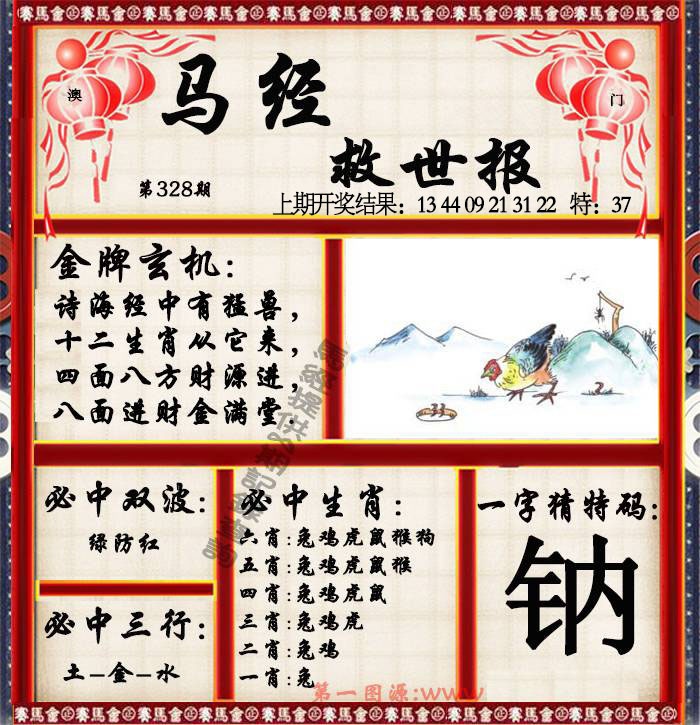 賽馬會㊣賽馬會㊣賽馬會㊣賽馬會㊣賽馬會㊣賽馬會㊣賽馬會
澳
门
马经
救世报
第328期
上期开奖结果：13 44 09 21 31 22 特：37
金牌玄机：
诗海经中有猛兽，
十二生肖从它来，
四面八方财源进，
八面进财金满堂.
33
2
必中双波：
绿防红
必中三行：
土-金-水
必中生肖：
六肖：兔鸡虎鼠猴狗
五肖：兔鸡虎鼠猴
四肖：兔鸡虎鼠
三肖：兔鸡虎
二肖：兔鸡
一肖：兔
一字猜特码：
钠
第一图源:www